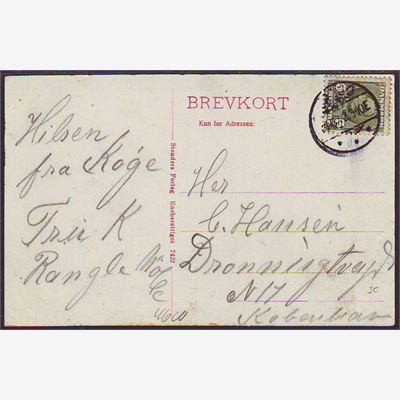 BREVKORT
Kun for Adressen:
Hilsen
fra Køge
K
Rangle
Stenders Forlag Eneberettiget 7422
Her
C. Hansen
Dronningtvgd
N 17
København
4600
JC